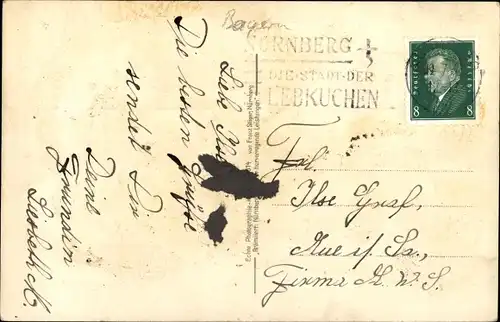 Bayern
NÜRNBERG
DIE·STADT·DER
LEBKUCHEN
Deutsches Reich
8 8
Die besten Grüße
sendet Dir
Deine
Freundin
Liesbeth M.
Echte Photographie
von Franz Seiger, Nürnberg
Frl.
Ilse Graf,
Aue i/Sa.,
Firma H. W. S.